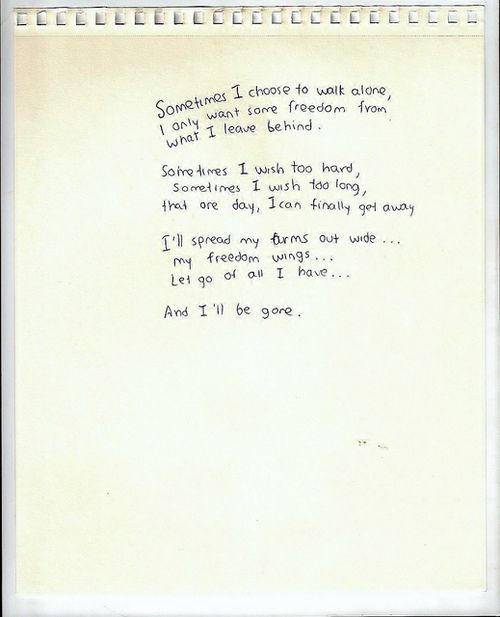 Sometimes I choose to walk alone,
I only want some freedom from
what I leave behind.
Sometimes I wish too hard,
Sometimes I wish too long,
that one day, I can finally get away
I'll spread my arms out wide...
my freedom wings...
Let go of all I have...
And I'll be gone.